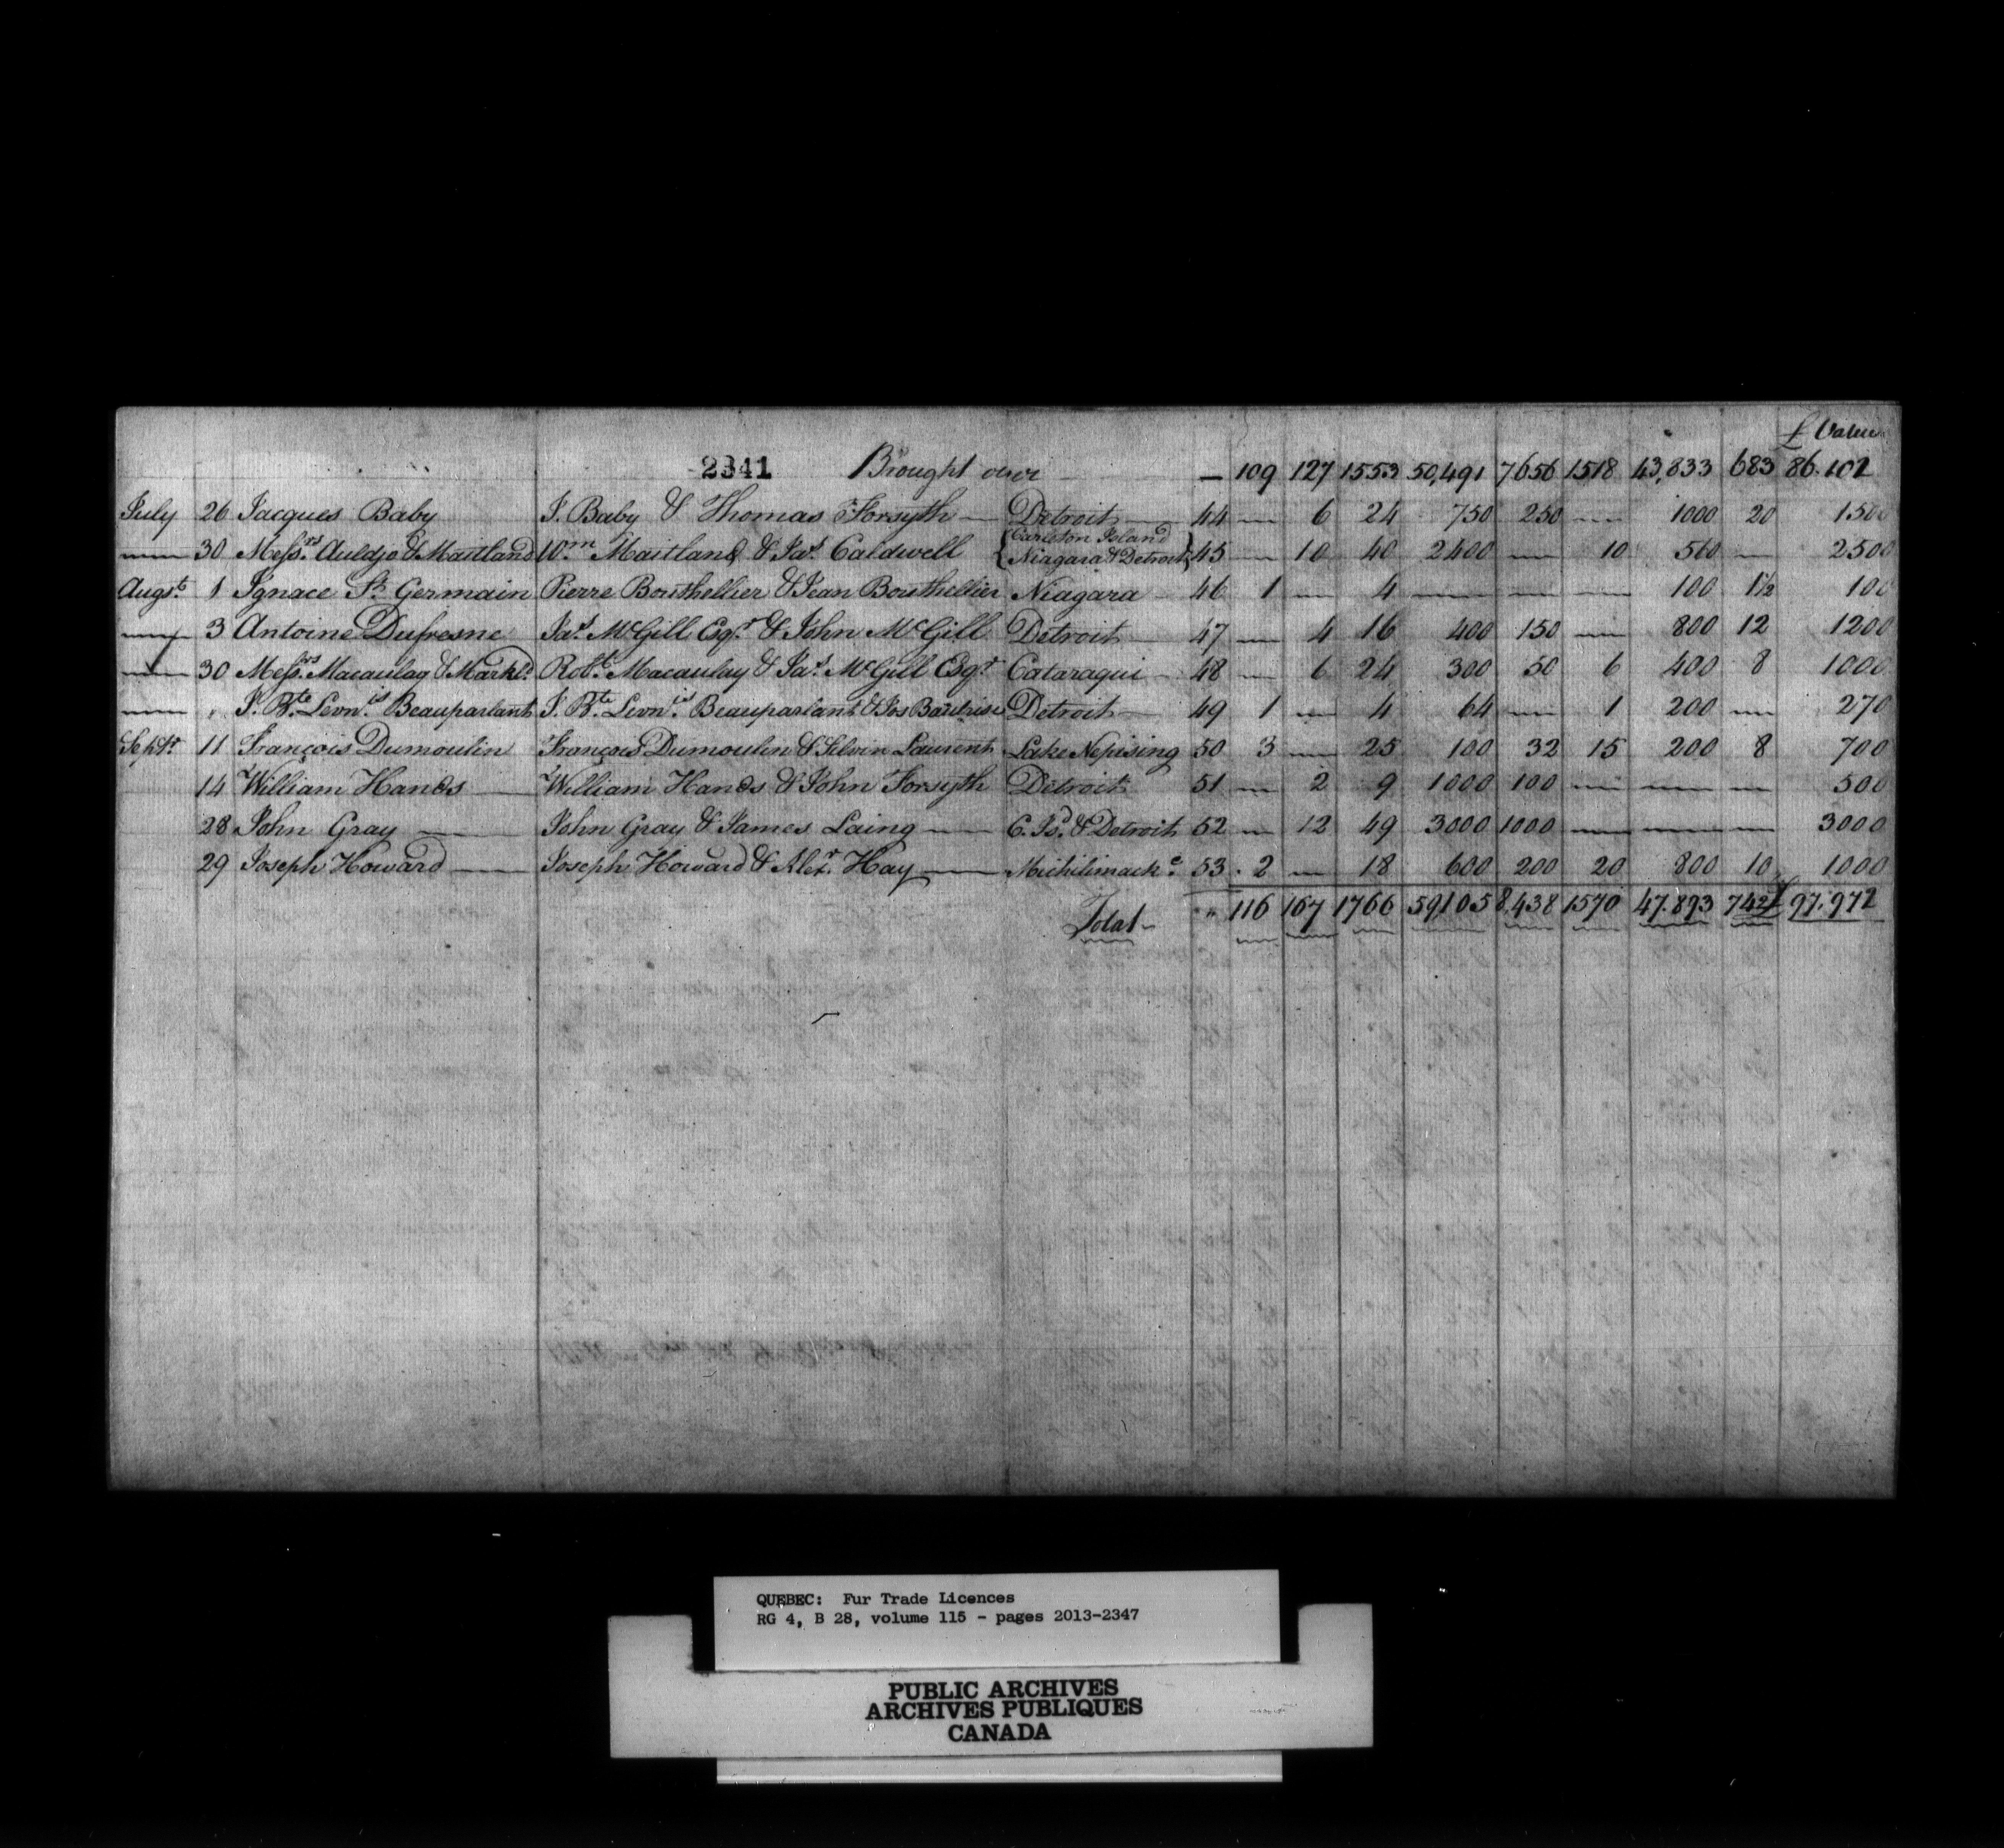 £ Value
2341 Brought over — 109 127 1553 50,491 7656 1518 43,833 683 86.102
July 26 Jacques Baby J. Baby & Thomas Forsyth — Detroit 44 — 6 24 750 250 — 1000 20 1500
Carleton Island
— 30 Messrs. Auldjo & Maitland Wm. Maitland & Jas. Caldwell Niagara & Detroit 45 — 10 40 2400 — 10 560 — 2500
Augt. 1 Ignace St. Germain Pierre Bouthellier & Jean Bouthellier Niagara 46 1 — 4 — — — 100 1½ 100
— 3 Antoine Dufresne Jas. McGill Esqr. & John McGill Detroit 47 — 4 16 400 150 — 800 12 1200
— 30 Messrs. Macaulay & Markld. Robt. Macaulay & Jas. McGill Esqr. Cataraqui 48 — 6 24 300 50 6 400 8 1000
— „ J. Bte. Levn.is Beauparlant J. Bte. Levn.is Beauparlant & Jos Detroit — 49 1 — 4 64 — 1 200 — 270
Septr. 11 François Dumoulin François Dumoulin & Selvin Laurent Lake Nepising 50 3 — 25 100 32 15 200 8 700
14 William Hands — William Hands & John Forsyth Detroit 51 — 2 9 1000 100 — — — 500
28 John Gray — John Gray & James Laing — C. Isd. & Detroit 52 — 12 49 3000 1000 — — — 3000
29 Joseph Howard — Joseph Howard & Alexr. Hay — Michilimacke. 53 2 — 18 600 200 20 800 10 1000
Total — „ 116 167 1766 59105 8,438 1570 47.893 742½ 97.972
QUEBEC: Fur Trade Licences
RG 4, B 28, volume 115 - pages 2013-2347
PUBLIC ARCHIVES
ARCHIVES PUBLIQUES
CANADA